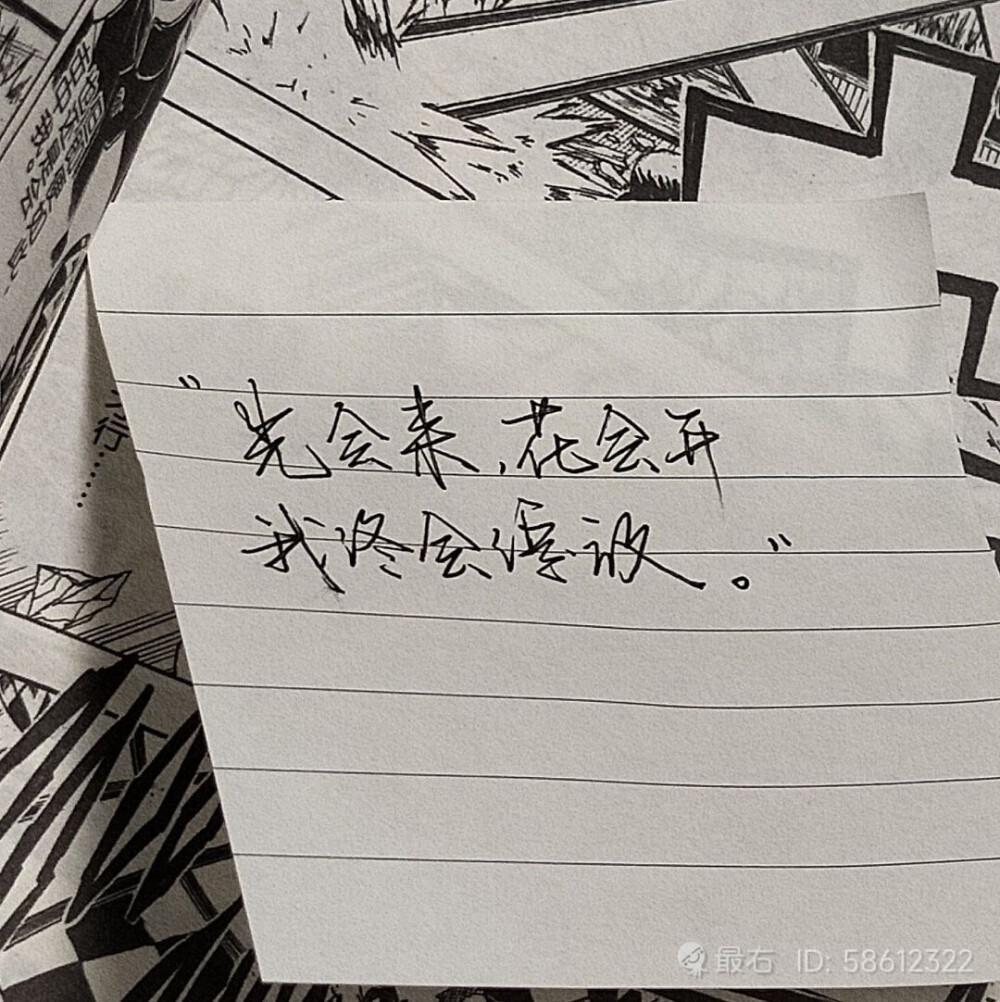 “光会来,花会开
我终会。”
行……
最右 ID: 58612322